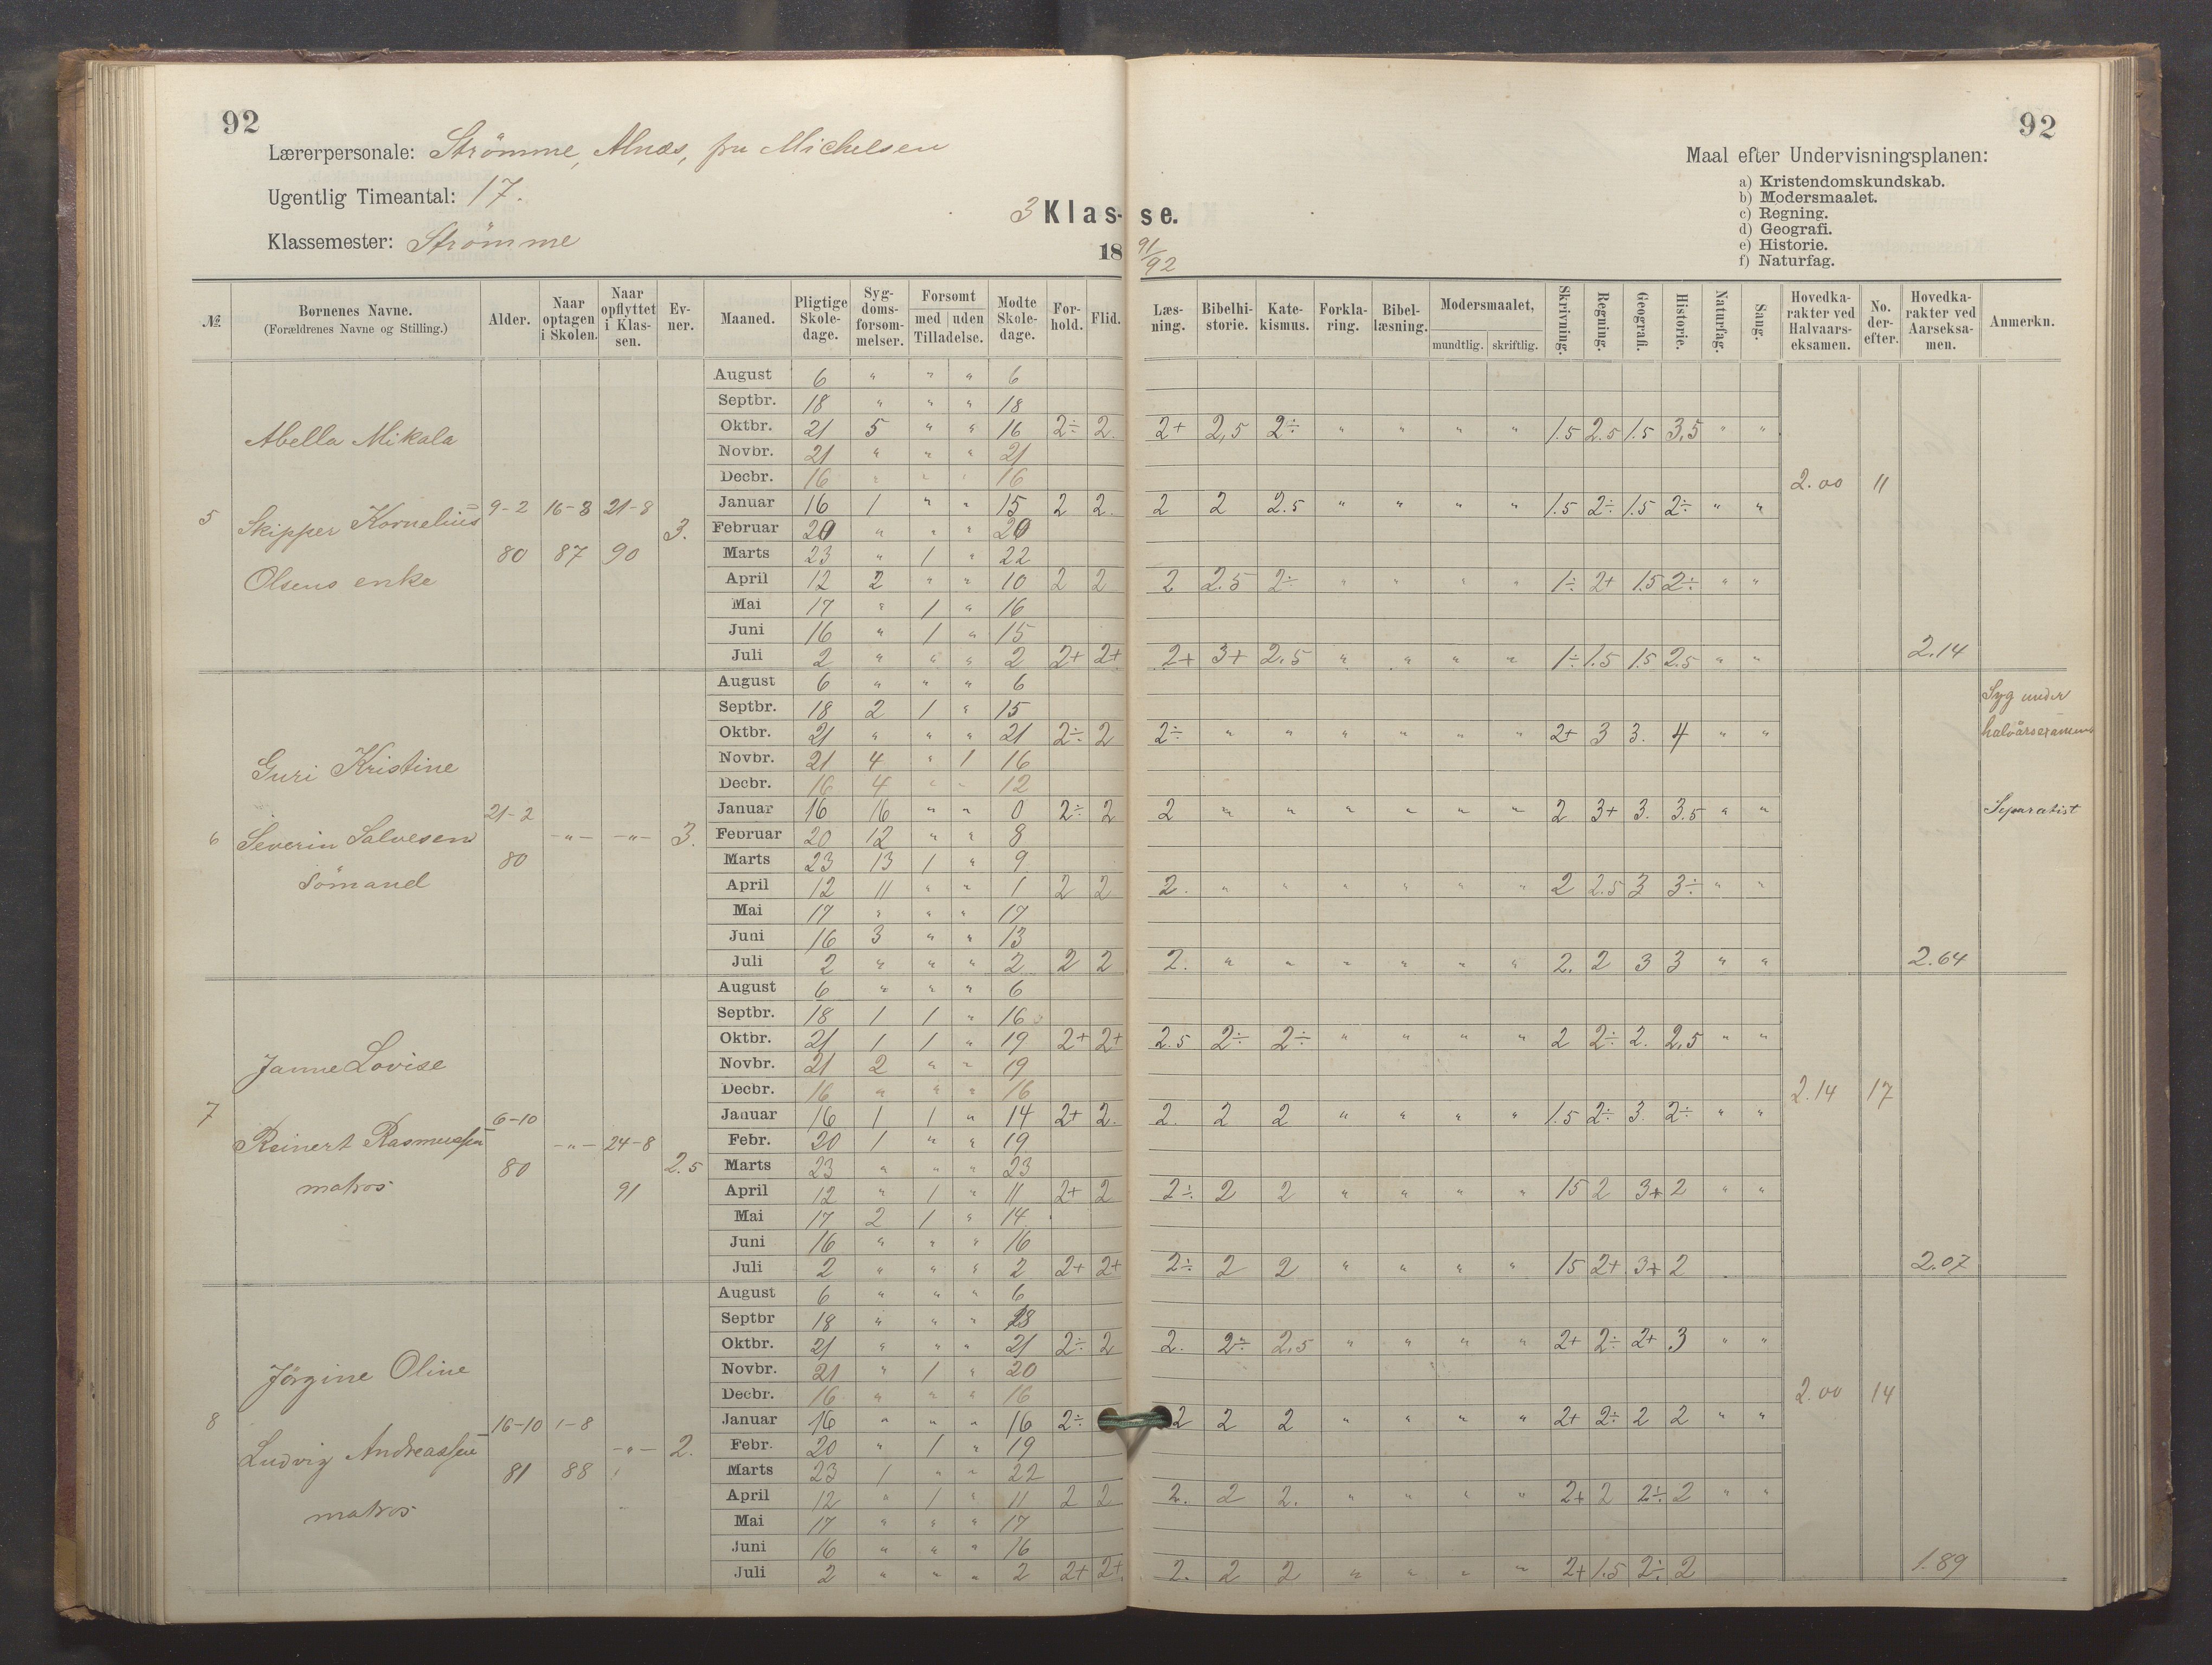 92
92
Lærerpersonale: Strömme, Alnæs, fru Michelsen
Maal efter Undervisningsplanen:
Ugentlig Timeantal: 17.
a) Kristendomskundskab.
b) Modersmaalet.
c) Regning.
3 Klasse.
d) Geografi.
Klassemester: Strömme
e) Historie.
18 91/92
f) Naturfag.
№ Børnenes Navne. (Forældrenes Navne og Stilling.) Alder. Naar optagen i Skolen. Naar opflyttet i Klassen. Evner. Maaned. Pligtige Skoledage. Sygdomsforsømmelser. Forsømt med uden Tilladelse. Mødte Skoledage. Forhold. Flid. Læsning. Bibelhistorie. Katekismus. Forklaring. Bibellæsning. Modersmaalet, mundtlig. skriftlig. Skrivning. Regning. Geografi. Historie. Naturfag. Sang. Hovedkarakter ved Halvaarseksamen. No. derefter. Hovedkarakter ved Aarseksamen. Anmerkn.
5 Abella Mikala
Skipper Kornelius
Olsens enke
9-2 80 16-8 87 21-8 90 3.
August 6 " " " 6
Septbr. 18 " " " 18
Oktbr. 21 5 " " 16 2÷ 2. 2+ 2,5 2÷ " " " " 1.5 2.5 1.5 3,5 " "
Novbr. 21 " " " 21
Decbr. 16 " " " 16 2.00 11
Januar 16 1 " " 15 2 2. 2 2 2.5 " " " " 1.5 2÷ 1.5 2÷ " "
Februar 20 " " " 20
Marts 23 " 1 " 22
April 12 2 " " 10 2 2 2 2.5 2÷ " " " " 1÷ 2+ 1.5 2÷ " "
Mai 17 " 1 " 16
Juni 16 " 1 " 15
Juli 2 " " " 2 2+ 2+ 2+ 3+ 2.5 " " " " 1÷ 1.5 1.5 2.5 " " 2.14
6 Guri Kristine
Severin Salvesen
Sömand
21-2 80 -"- -"- 3.
August 6 " " " 6 Syg under
Septbr. 18 2 1 " 15
Oktbr. 21 " " " 21 2÷ 2 2÷ " " " " " " 2+ 3 3. 4 " " halvårsexamen
Novbr. 21 4 " 1 16
Decbr. 16 4 " " 12
Januar 16 16 " " 0 2÷ 2 2 " " " " " " 2 3+ 3. 3.5 " " Separatist
Februar 20 12 " " 8
Marts 23 13 1 " 9
April 12 11 " " 1 2 2 2. " " " " " " 2 2.5 3 3÷ " "
Mai 17 " " " 17
Juni 16 3 " " 13
Juli 2 " " " 2 2 2 2. " " " " " " 2. 2 3 3 " " 2.64
7 Janne Lovise
Reinert Rasmussen
matros
6-10 80 -"- 24-8 91 2.5
August 6 " " " 6
Septbr. 18 1 1 " 16
Oktbr. 21 1 1 " 19 2+ 2+ 2.5 2÷ 2÷ " " " " 2 2÷ 2. 2,5 " "
Novbr. 21 2 " " 19
Decbr. 16 " " " 16 2.14 17
Januar 16 1 1 " 14 2+ 2. 2. 2 2 " " " " 1.5 2÷ 3. 2÷ " "
Febr. 20 1 " " 19
Marts 23 " " " 23
April 12 " 1 " 11 2+ 2 2÷ 2 2 " " " " 15 2 3+ 2 " "
Mai 17 2 1 " 14
Juni 16 " " " 16
Juli 2 " " " 2 2+ 2+ 2÷ 2 2 " " " " 15 2+ 3+ 2 2.07
8 Jörgine Oline
Ludvig Andreassen
matros
16-10 81 1-8 88 -"- 2.
August 6 " " " 6
Septbr 18 " " " 18
Oktbr. 21 " " " 21 2÷ 2 2. 2÷ 2,5 " " " " 2+ 2÷ 2+ 3 " "
Novbr. 21 " 1 " 20
Decbr. 16 " " " 16 2.00 14
Januar 16 " " " 16 2÷ 2 2 2 " " " " 2+ 2÷ 2 2 " "
Febr. 20 " 1 " 19
Marts 23 1 " " 22
April 12 " 1 " 11 2 2 2. 2 2. " " " " 2+ 2 2÷ 2 " "
Mai 17 " " " 17
Juni 16 " " " 16
Juli 2 " " " 2 2+ 2+ 2. 2 2 " " " " 2+ 1.5 2÷ 2 1.89